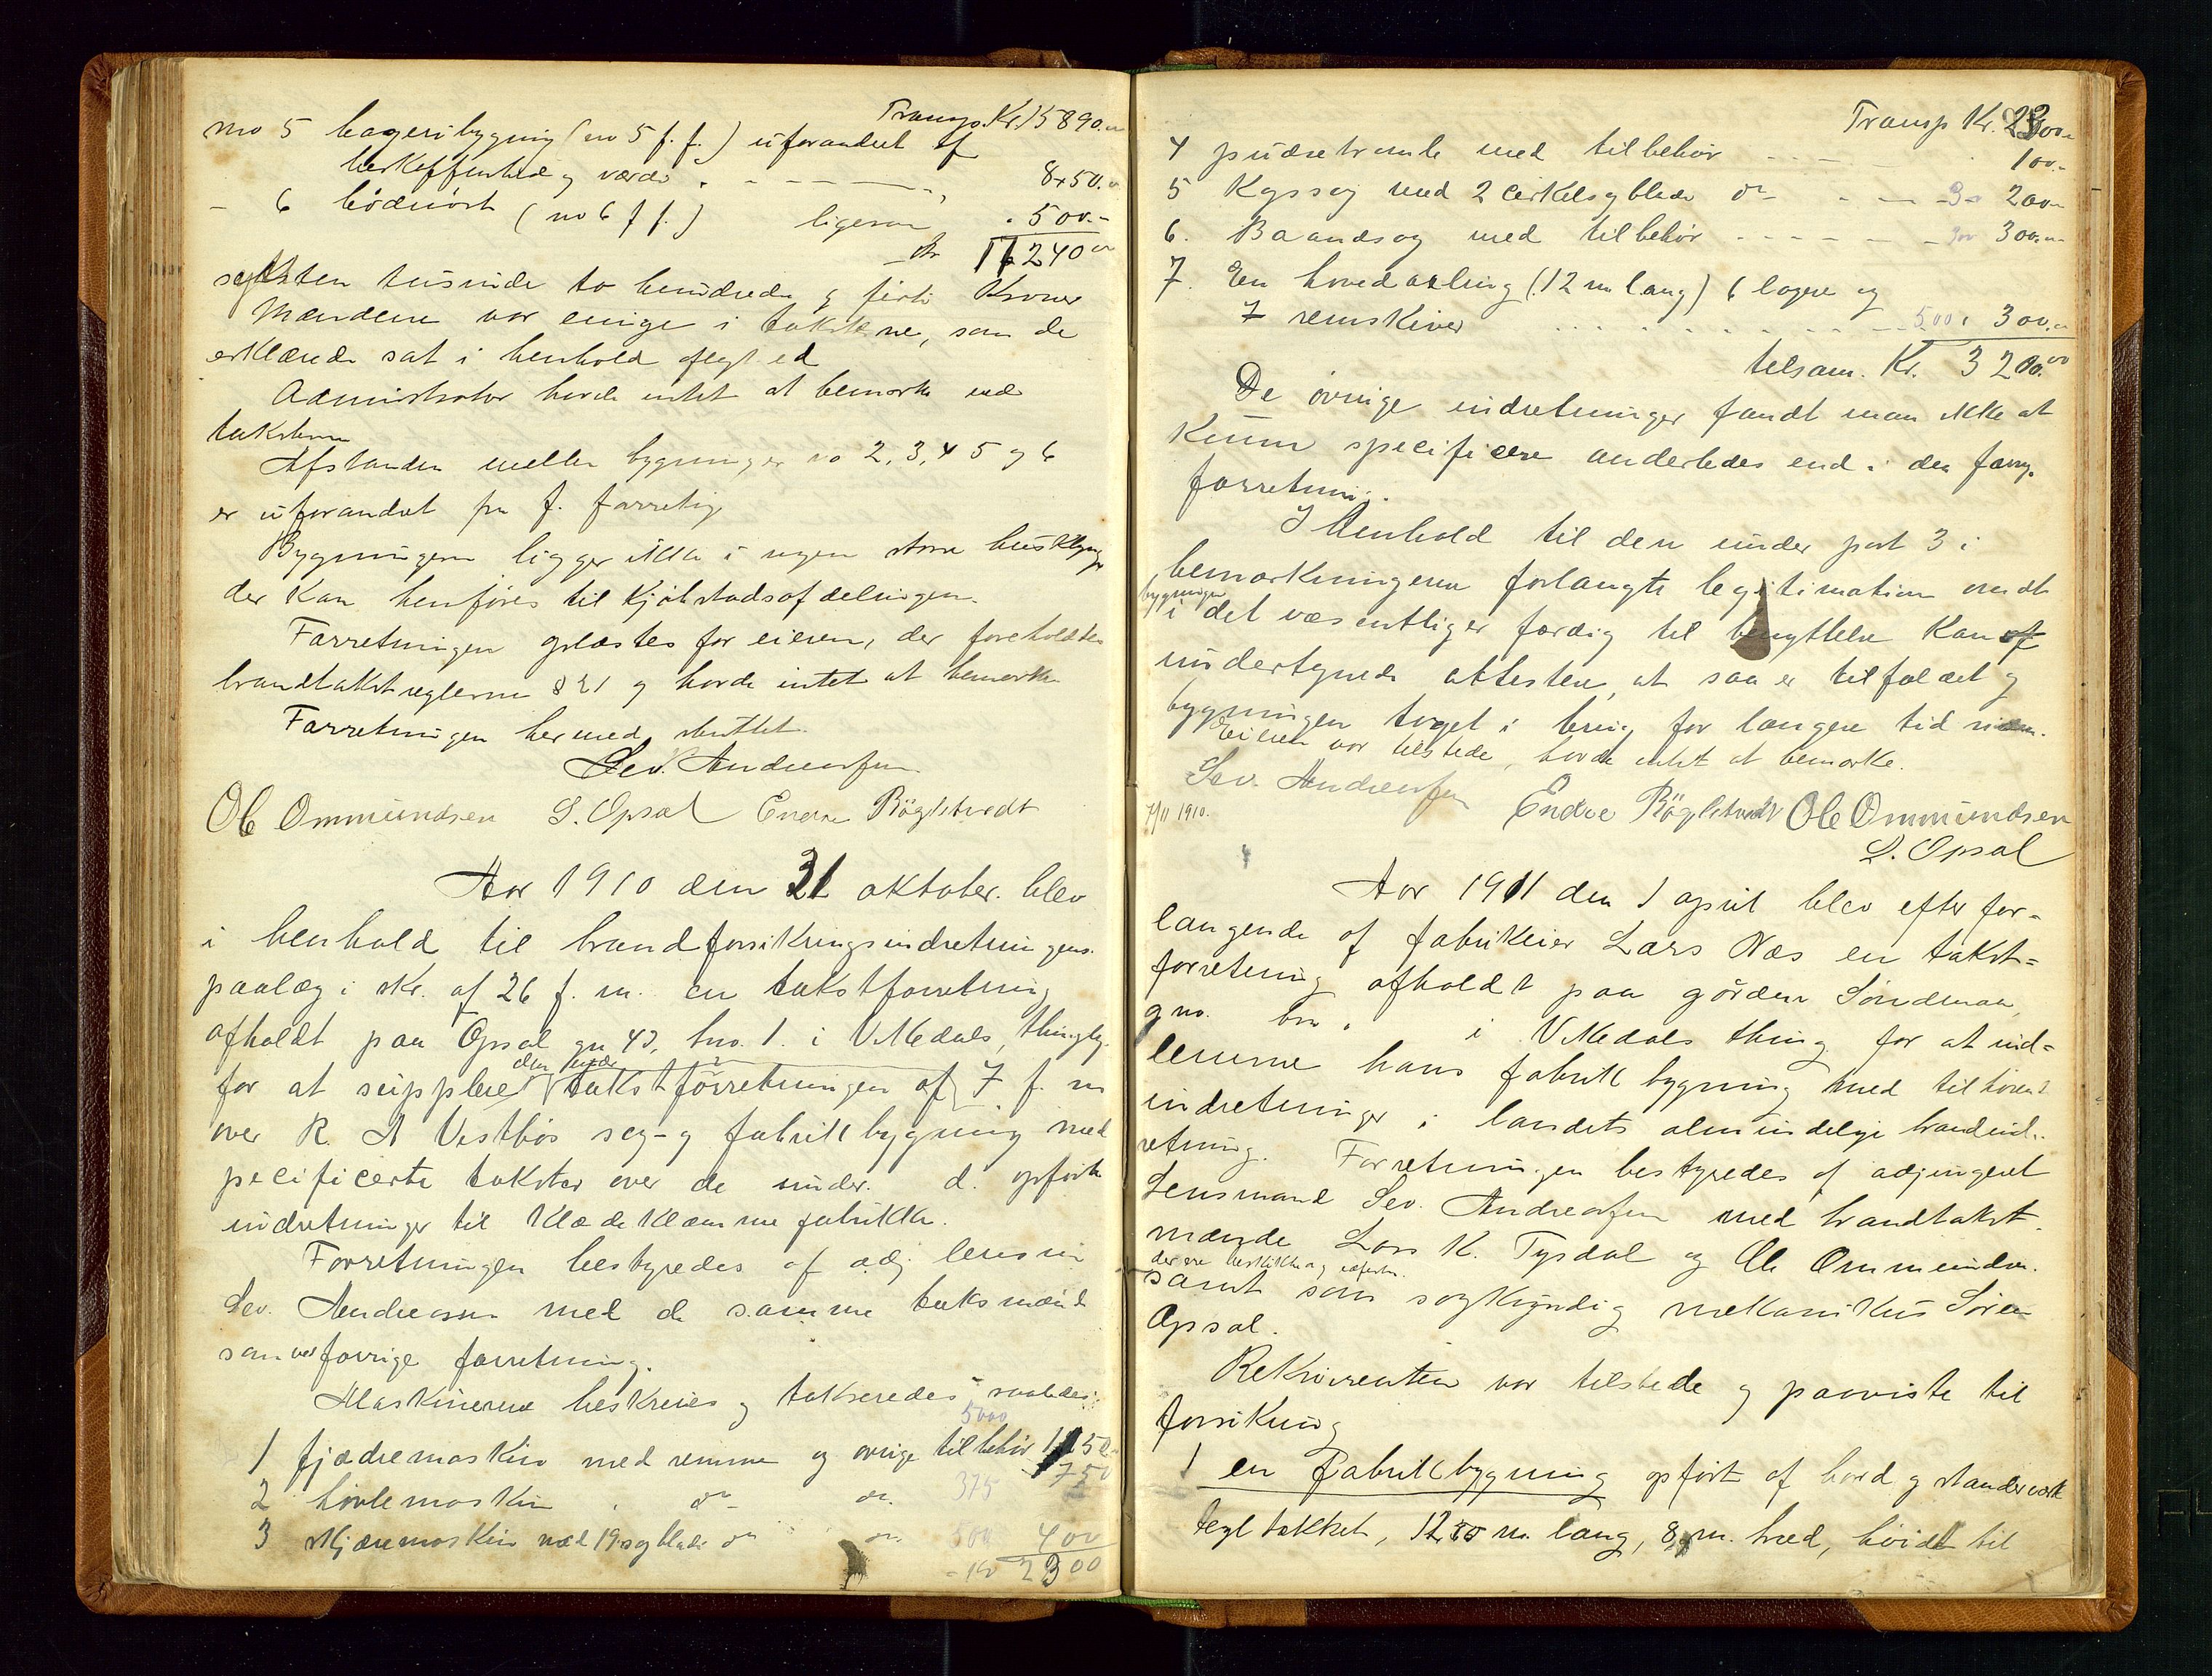 Transp. Kr. 15890.00
no 5 bageribygning (no 5 f. f.) uforandret af
beskaffenhed og værdi . 850.00
- 6 bødnøst (no 6 f f.) ligesom . 500.-
Kr 17240 00
sytten tusinde to hundrede og firti Kroner
Mændene var enige i taksterne, som de
erklærede sat i henhold aflagt ed
Administrator havde intet at bemærke ved
taksterne
Afstanden mellem bygninger no 2, 3, 4 5 og 6
er uforandret fra f. forretnig
Bygningerne ligger ikke i nogen større husklynge
der kan henføres til Kjøbstadsafdelingen.
Forretningen oplæstes for eieren, der foreholdtes
brandtakstreglerne § 21 og havde intet at bemærke
Forretningen hermed sluttet.
Sev. Andreassen
Ole Ommundsen S. Opsal Endre Bøgletvedt
Aar 1910 den 31 oktober. blev
i henhold til brandforsikringsindretningens
paalæg i skr. af 26 f. m. en takstforretning
afholdt paa Opsal gn 43, bno. 1. i Vikedals thinglag
for at supplere den under takstforretningen af 7 f. m
over R. A Vestbøs sag- og fabrikbygning med
specificerte takster over de under d. opførte
indretninger til Klædeklemme fabrikken.
Forretningen bestyredes af adj lensm
Sev. Andreassen med de samme taksmænd
som ved forrige forretning.
Maskinerne beskreves og takseredes saaledes:
5000
1 fjædremaskin med remme og øvrige tilbehør 1150
2 høvlemaskin do do. 375 750
3 skjæremaskin med 19 sagblade do do. 500 400
2300
Transp Kr. 2300.-
4 pudsetromle med tilbehør 100.-
5 Kapsag med 2 cirkelsagblade do 200.-
6. Baandsag med tilbehør 300.-
7. En hovedaxling (12 m lang) 6 lagere og
7 remskiver 500 300.-
tilsam. Kr. 3200.00
De øvrige indretninger fandt man ikke at
kunne specificere anderledes end i den forrige
forretning.
I Henhold til den under post 3 i
bemærkningerne forlangte legitimation om at
bygningen
i det væsentlige er færdig til benyttelse kan af
undertegnede attestere, at saa er tilfældet og
bygningen taget i brug for længere tid siden.
Eieren var tilstede, havde intet at bemærke.
Sev. Andreassen Endre Bøgletvedt Ole Ommundsen
7/11 1910.
S. Opsal
Aar 1911 den 1 april blev efter for-
langende af fabrikeier Lars Næs en takst-
forretning afholdt paa gården Søndenaa,
gno. bno. i Vikedals thing. for at ind-
lemme hans fabrikbygning med tilhørende
indretninger i landets almindelige brandind-
retning. Forretningen bestyredes af adjungeret
Lensmand Sev. Andreassen med brandtakst-
mænde Lars K. Tysdal og Ole Ommundsen.
der ere beskikkede og edfæstede.
samt som sagkyndig mekanikus Søren
Opsal.
Rekvirenten var tilstede og paaviste til
forsikring
1 en Fabrikbygning opført af bord og standerverk
tegltækket, 12,80 m. lang, 8, m. bred, høide til